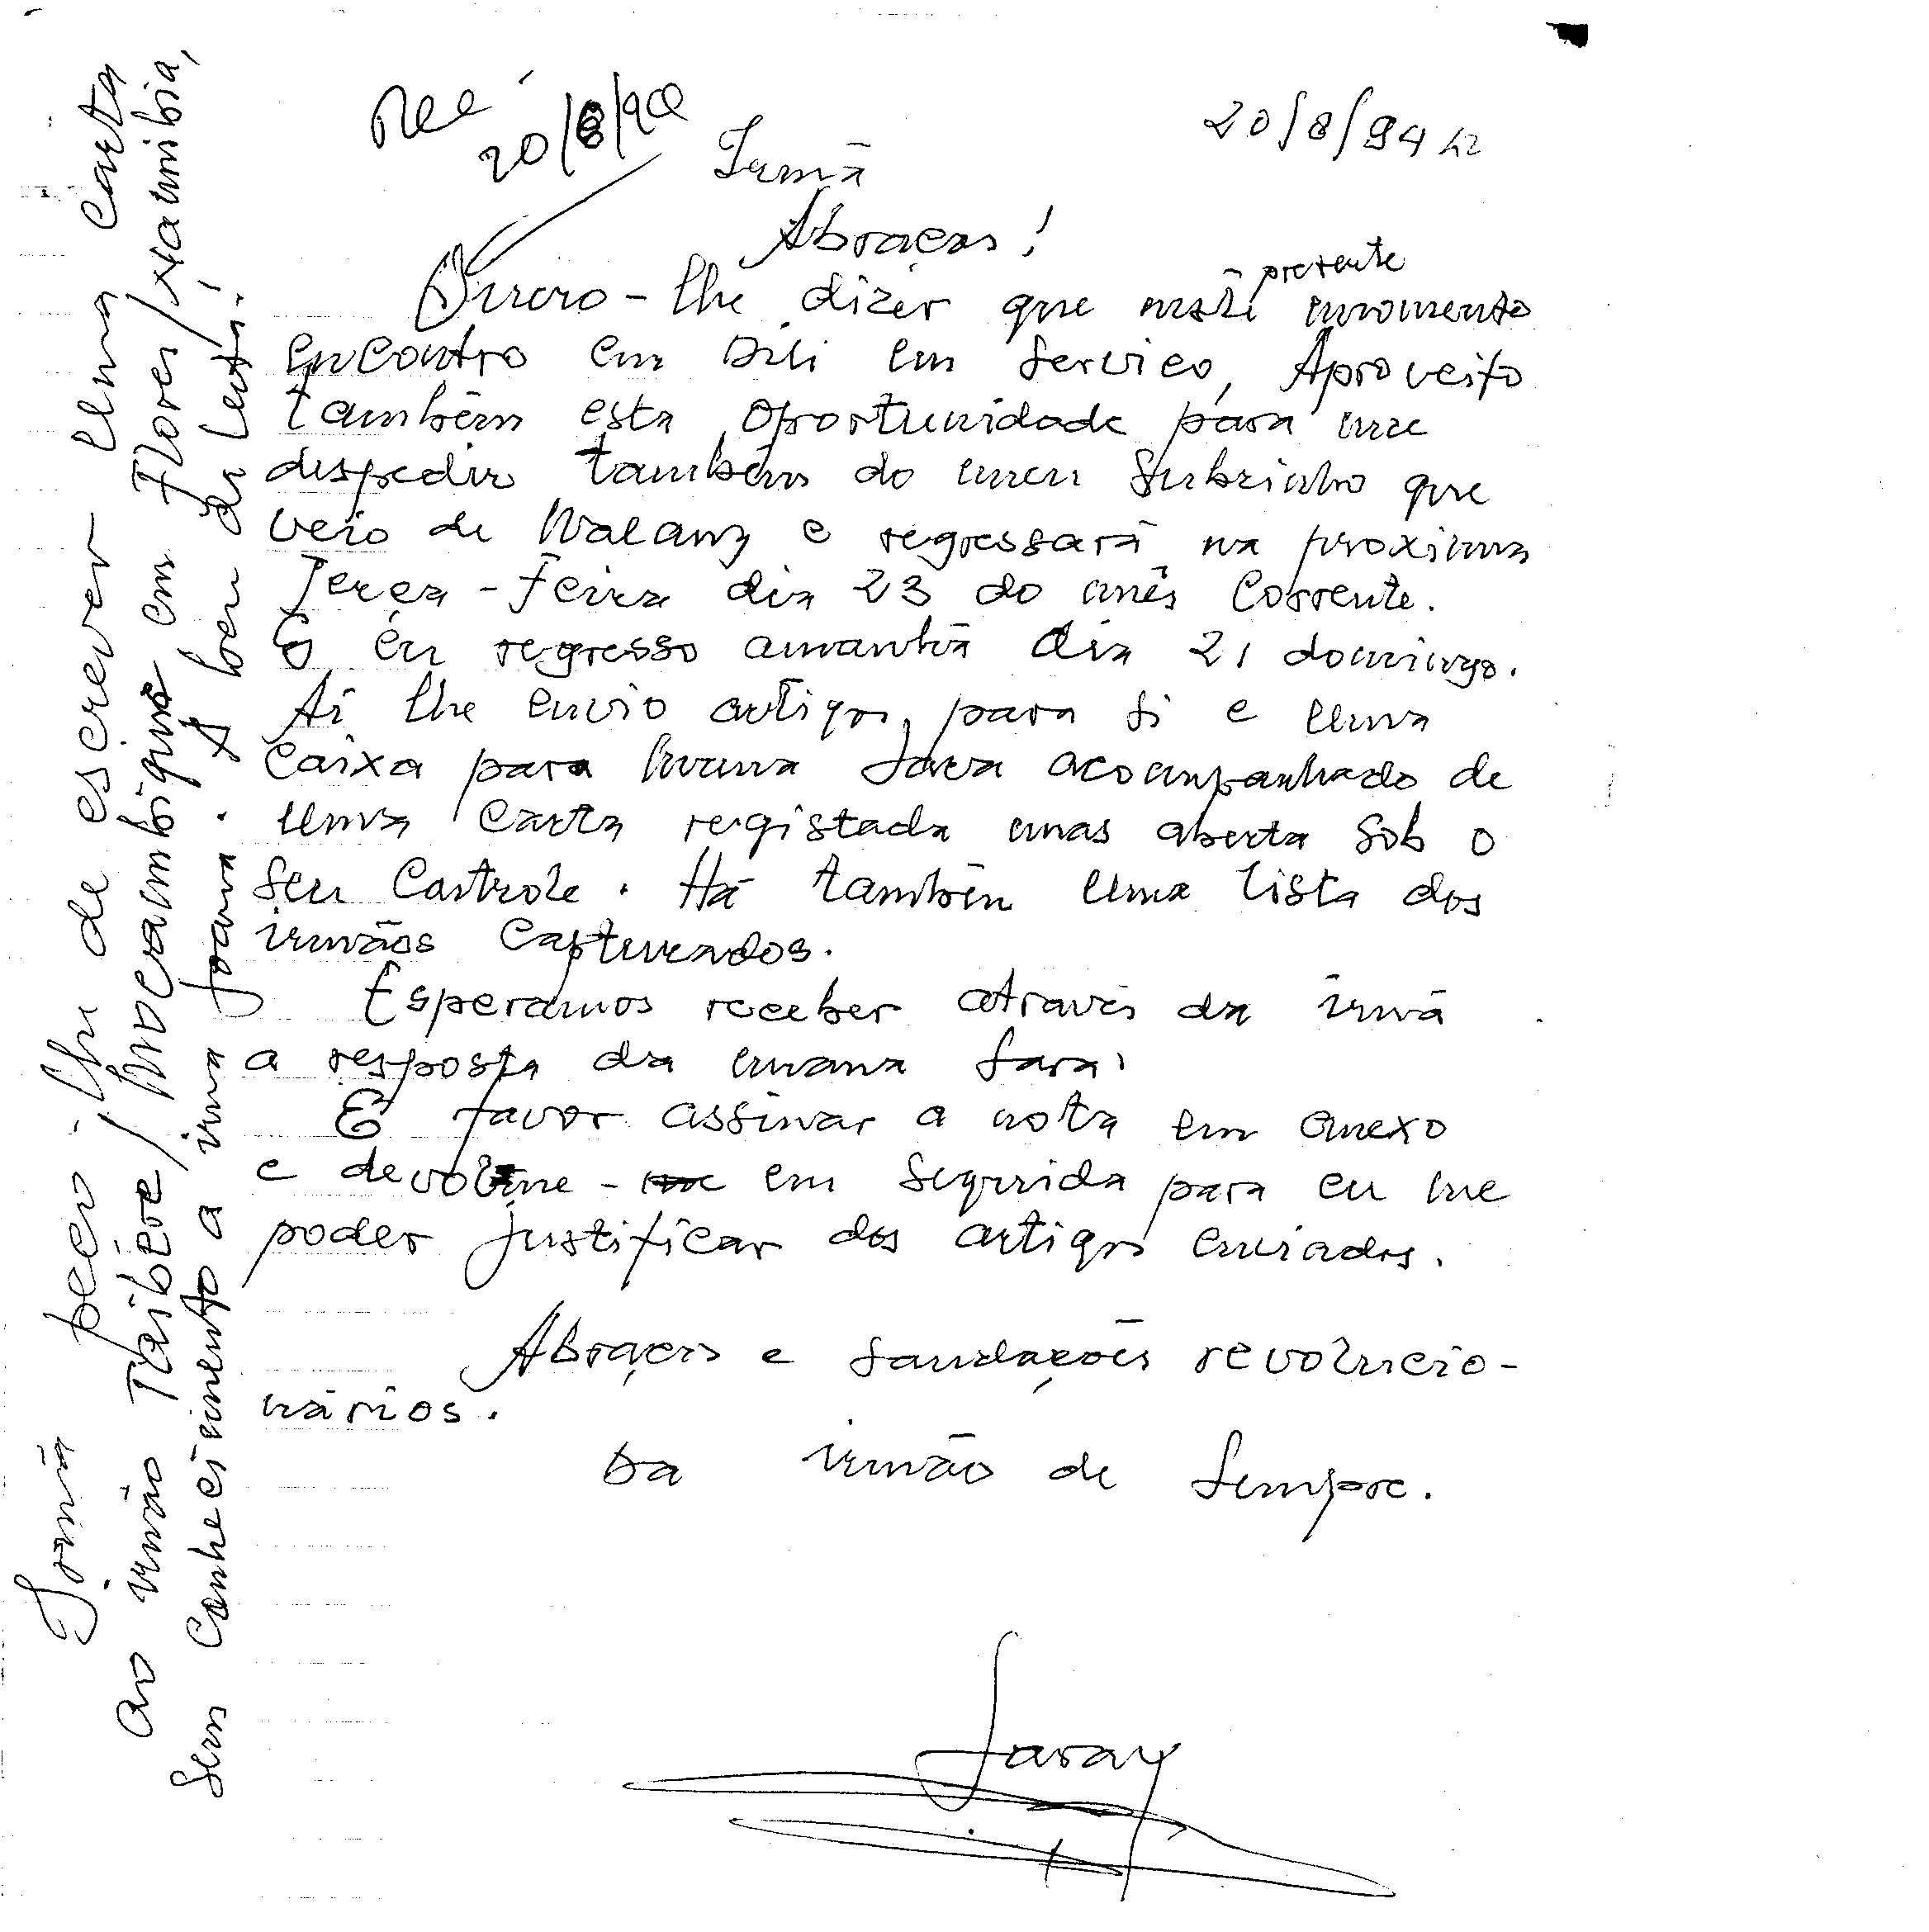 Rec
20/8/94
20/8/94
Irmã
Abraços!
Quero-lhe dizer que neste presente momento
encontro em Dili em serviço, Aproveito
também esta oportunidade para me
despedir também do meu subrinho que
veio de Malang e regressará na proxima
Terça-feira dia 23 do mês corrente.
E eu regresso amanhã dia 21 domingo.
Aí lhe envio artigos para si e uma
caixa para mana Sara acompanhado de
uma carta registada mas aberta sob o
seu controle. Há também uma lista dos
irmãos capturados.
Esperamos receber através da irmã
a resposta da mana Sara.
É favor assinar a nota em anexo
e devolve-me em seguida para eu me
poder justificar dos artigos enviados.
Abraços e saudações revolucio-
nários.
Da irmão de sempre.
Saray
Irmã peço-lhe de escrever uma carta
ao irmão Taibére/Moçambique em Flores/
sem conhecimento a irmã Joana. A bem da Luta!